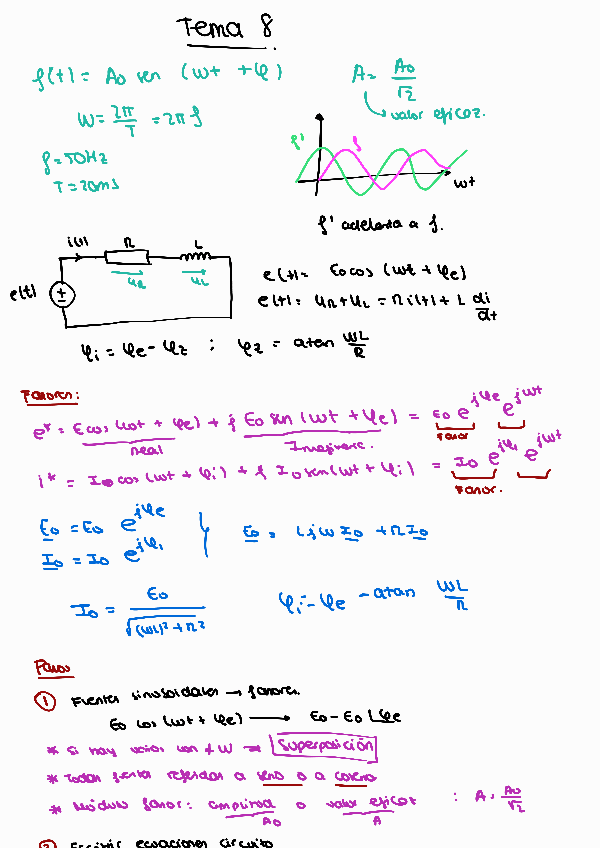 Tema 8
f(t) = A₀ sen (ωt + φ)
A = A₀/√2
ω = 2π/T = 2πf
↳ valor eficaz.
f = 50Hz
T = 20ms
f' f
ωt
f' adelanta a f.
i(t) R L
e(t) u_R u_L
e(t) = E₀ cos (ωt + φe)
e(t) = u_R + u_L = R i(t) + L di/dt
φi = φe − φz ; φz = atan ωL/R
Fasores:
e* = E cos (ωt + φe) + j E₀ sen (ωt + φe) = E₀ e^jφe e^jωt
real Imaginaria. fasor
i* = I₀ cos (ωt + φi) + j I₀ sen (ωt + φi) = I₀ e^jφi e^jωt
fasor.
E₀ = E₀ e^jφe
I₀ = I₀ e^jφi
E₀ = LjωI₀ + RI₀
I₀ = E₀/√((ωL)² + R²)
φi = φe − atan ωL/R
Pasos
① Fuentes sinusoidales → fasores.
E₀ cos (ωt + φe) → E₀ = E₀ ∠φe
* Si hay varias con ≠ ω → Superposición
* Todas fuentes referidas a seno o a coseno
* Módulo fasor: amplitud o valor eficaz : A = A₀/√2
A₀ A
② Escribir ecuaciones circuito